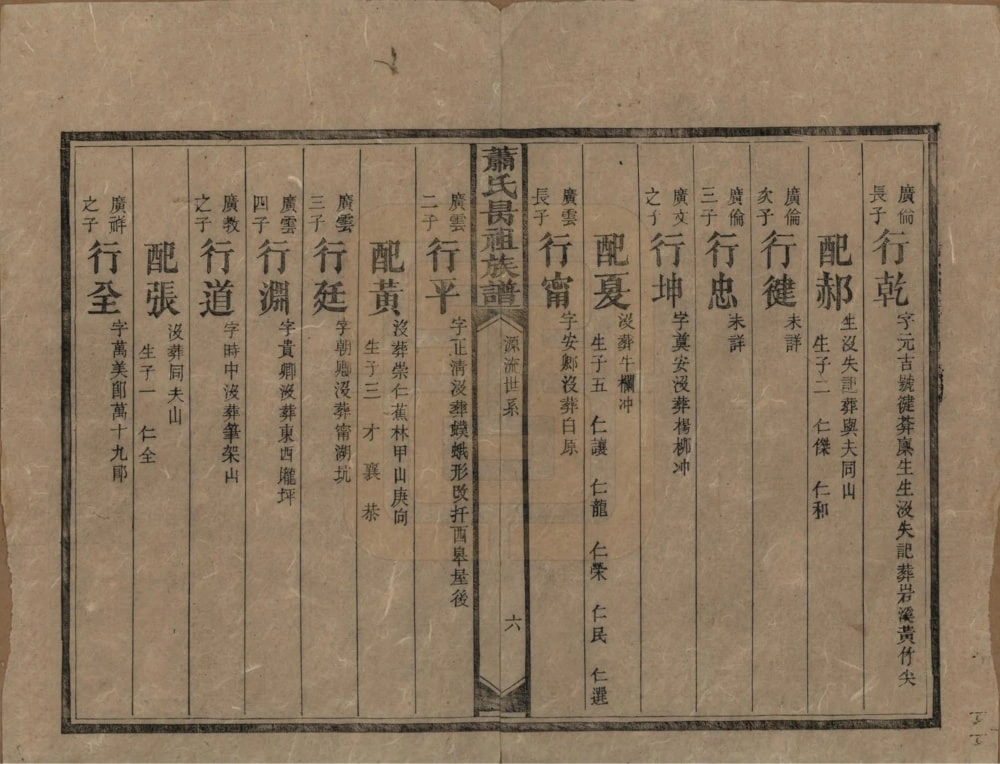 廣倫長子 行乾 字元古號健莽廩生生沒失記葬岩溪黃竹尖
配郝 生沒失記葬與夫同山
生子二 仁傑 仁和
廣倫次子 行健 未詳
廣倫三子 行忠 未詳
廣文之子 行坤 字奠安沒葬楊柳冲
配夏 沒葬牛欄冲
生子五 仁讓 仁龍 仁榮 仁民 仁選
廣雲長子 行甯 字安鄉沒葬白原
蕭氏昺祖族譜 源流世系 六
廣雲二子 行平 字正清沒葬蟆蛾形改扦西皋屋後
配黃 沒葬崇仁蕉林甲山庚向
生子三 才 襄 恭
廣雲三子 行廷 字朝卿沒葬甯湖坑
廣雲四子 行淵 字貴卿沒葬東西壠坪
廣教之子 行道 字時中沒葬筆架山
配張 沒葬同夫山
生子一 仁全
廣祥之子 行全 字萬美郎萬十九郎